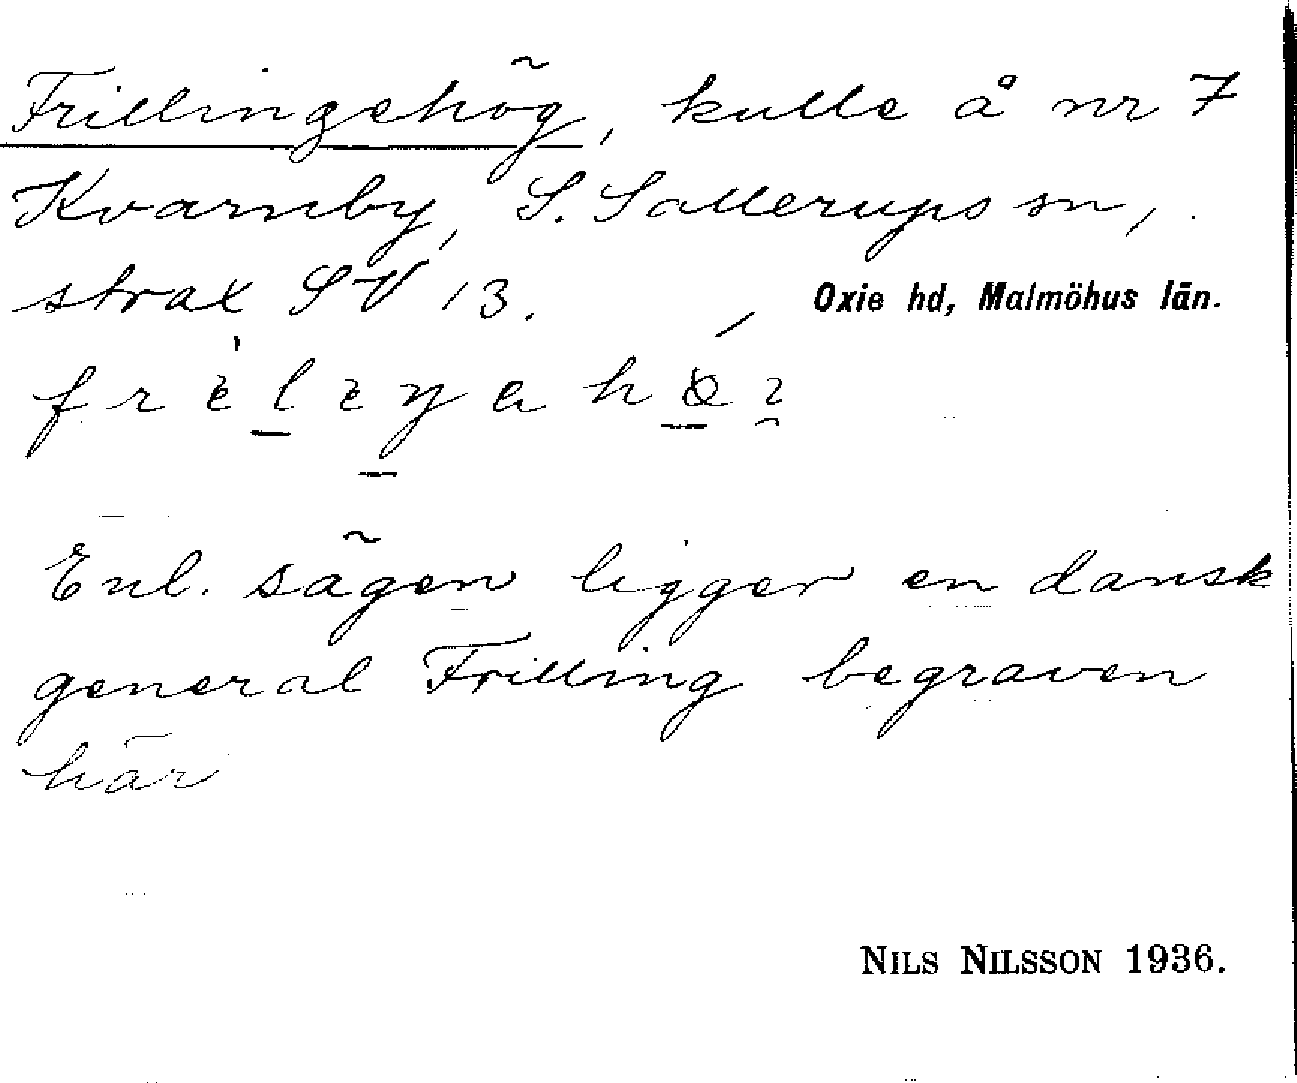 Frillingehög, kulle å nr 7
Kvarnby, S. Sallerups sn,
strax SV 13. Oxie hd, Malmöhus län.
Enl. sägen ligger en dansk
general Frilling begraven
här
NILS NILSSON 1936.